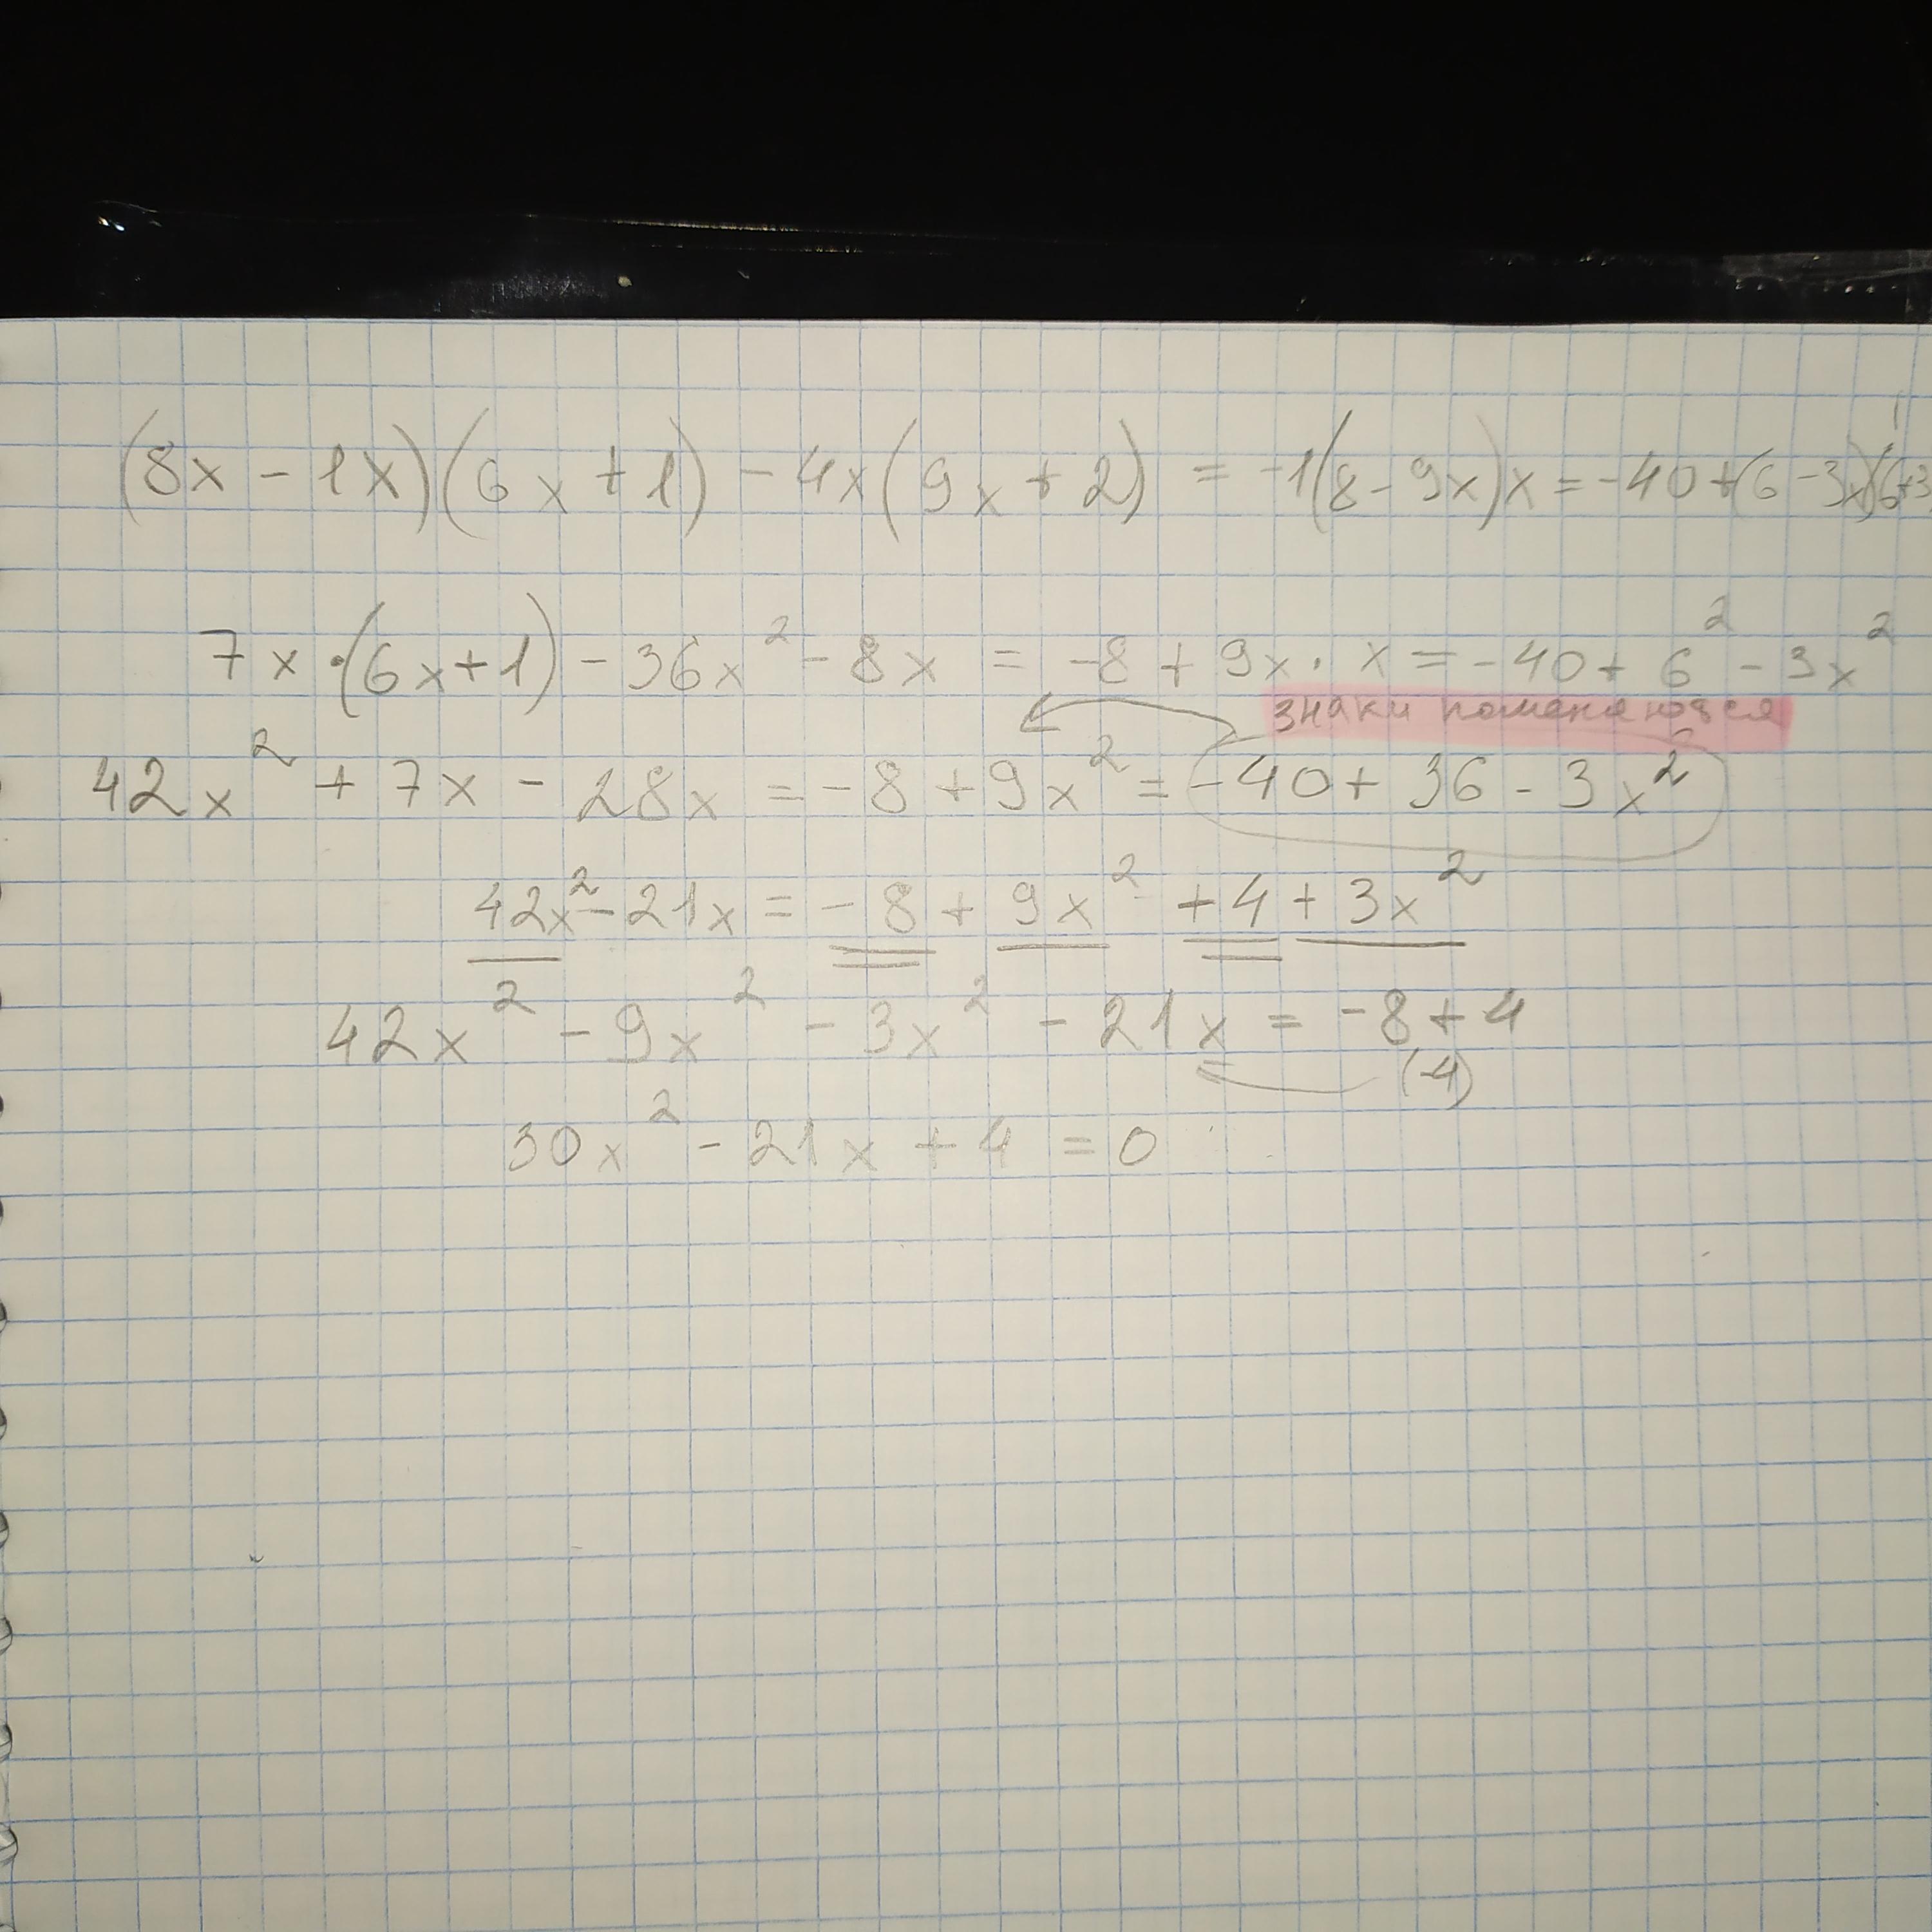 (8x - 1x)(6x + 1) - 4x(9x + 2) = -1(8 - 9x)x = -40 + (6 - 3x)(6+3
7x · (6x+1) - 36x² - 8x = -8 + 9x · x = -40 + 6² - 3x²
знаки поменяются
42x² + 7x - 28x = -8 + 9x² = -40 + 36 - 3x²
42x² - 21x = -8 + 9x² + 4 + 3x²
42x² - 9x² - 3x² - 21x = -8 + 4
(-4)
30x² - 21x + 4 = 0